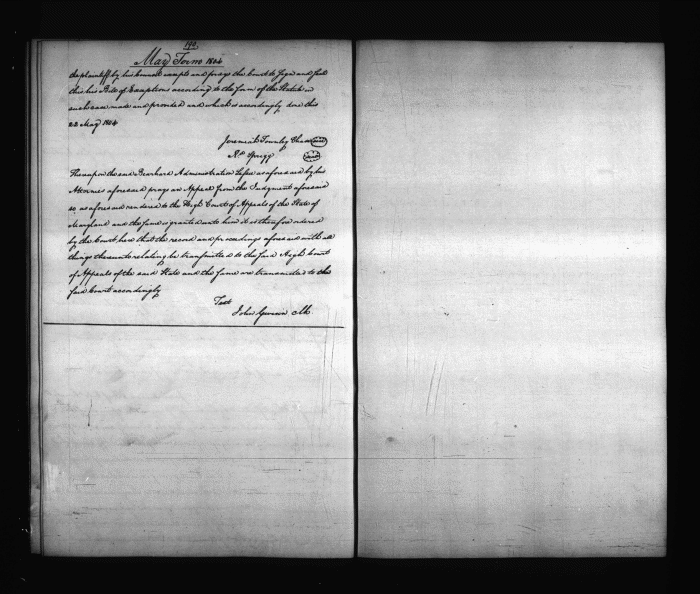 192
May Term 1804
the plaintiff by his counsel excepts and prays the Court to Sign and Seal
this his Bill of Exceptions according to the form of the Statute in
such case made and provided and which is accordingly done this
22 May 1804
Jeremiah Townley Chase Seal
Rd Sprigg Seal
Thereupon the said Administration as aforesaid by his
Attorney aforesaid prays an Appeal from the Judgment aforesaid
so as aforesaid rendered to the High Court of Appeals of the State of
Maryland and the same is granted unto him it is therefore ordered
by the Court here that the record and proceedings aforesaid with all
things thereunto relating be transmitted to the said High Court
of Appeals of the said State and the same are transmitted to the
said Court accordingly
Test
John Gwinn Clk